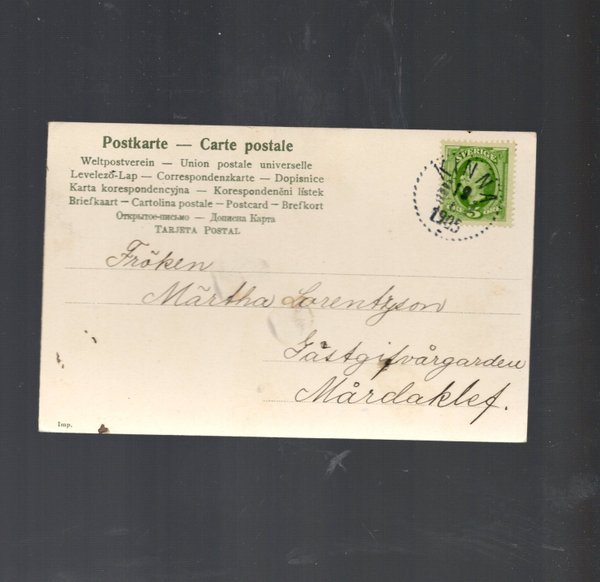 Postkarte — Carte postale
Weltpostverein — Union postale universelle
Levelező-Lap — Correspondenzkarte — Dopisnice
Karta korespondencyjna — Korespondenční lístek
Briefkaart — Cartolina postale — Postcard — Brefkort
Открытое письмо — Дописна Карта
TARJETA POSTAL
SVERIGE
5
KINNA
18
1905
Fröken
Märtha Lorentzson
Gästgifvårgarden
Mårdaklef.
Imp.